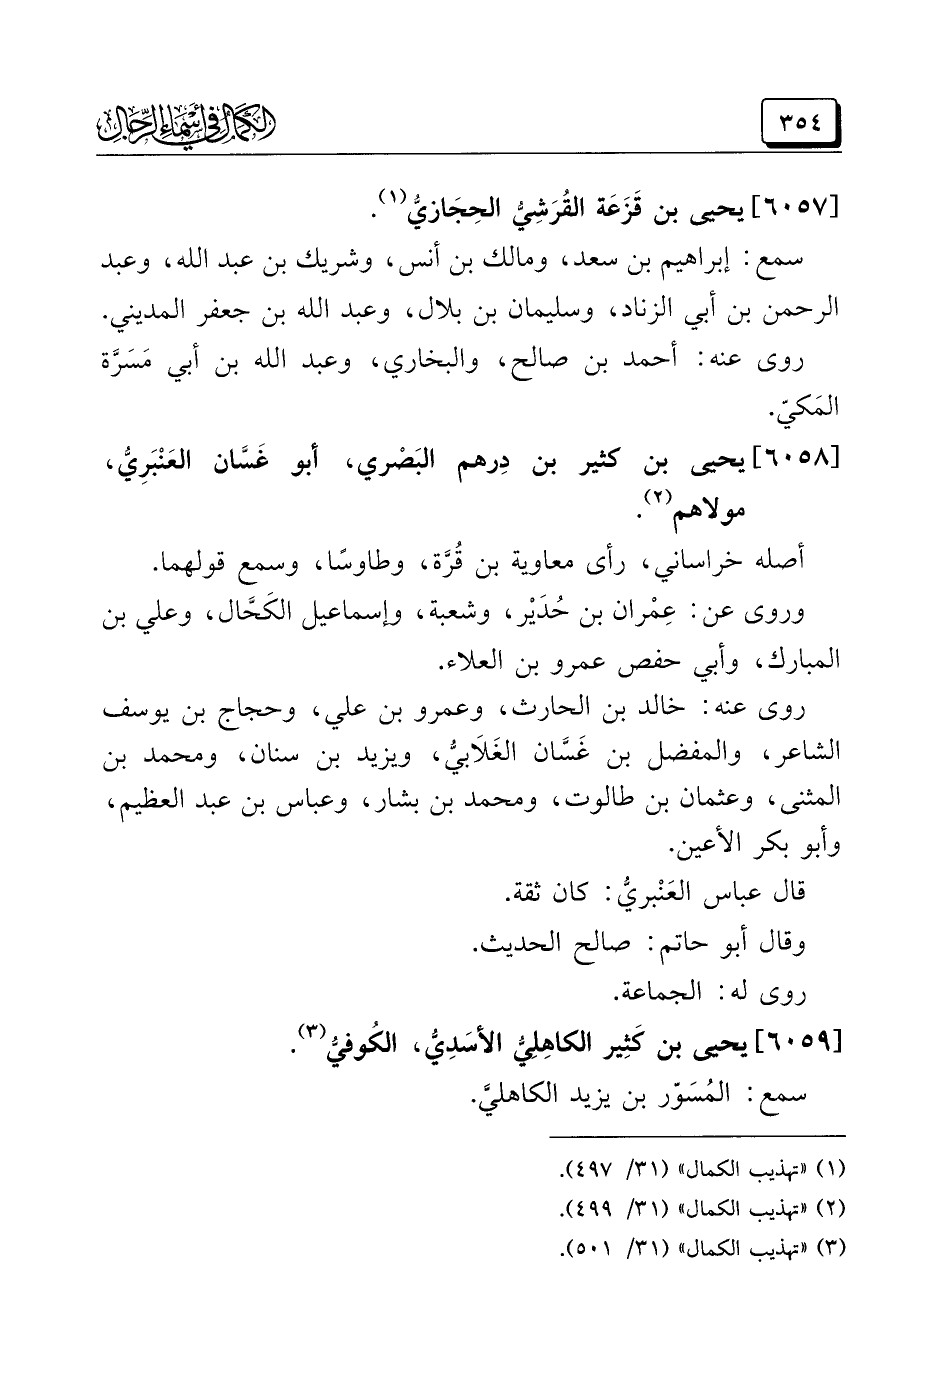 ٣٥٤
الكمال في أسماء الرجال
[٦٠٥٧] يحيى بن قَزَعَة القُرَشِيُّ الحِجَازيُّ(١).
سمع: إبراهيم بن سعد، ومالك بن أنس، وشريك بن عبد الله، وعبد
الرحمن بن أبي الزناد، وسليمان بن بلال، وعبد الله بن جعفر المديني.
روى عنه: أحمد بن صالح، والبخاري، وعبد الله بن أبي مَسَرَّة
المَكيّ.
[٦٠٥٨] يحيى بن كثير بن دِرهم البَصْري، أبو غَسَّان العَنْبَرِيُّ،
مولاهم(٢).
أصله خراساني، رأى معاوية بن قُرَّة، وطاوسًا، وسمع قولهما.
وروى عن: عِمْران بن حُدَيْر، وشعبة، وإسماعيل الكَحَّال، وعلي بن
المبارك، وأبي حفص عمرو بن العلاء.
روى عنه: خالد بن الحارث، وعمرو بن علي، وحجاج بن يوسف
الشاعر، والمفضل بن غَسَّان الغَلَابيُّ، ويزيد بن سنان، ومحمد بن
المثنى، وعثمان بن طالوت، ومحمد بن بشار، وعباس بن عبد العظيم،
وأبو بكر الأعين.
قال عباس العَنْبريُّ: كان ثقة.
وقال أبو حاتم: صالح الحديث.
روى له: الجماعة.
[٦٠٥٩] يحيى بن كَثِير الكاهِلِيُّ الأسَدِيُّ، الكُوفيُّ(٣).
سمع: المُسَوّر بن يزيد الكاهليَّ.
(١) «تهذيب الكمال» (٣١/ ٤٩٧).
(٢) «تهذيب الكمال» (٣١/ ٤٩٩).
(٣) «تهذيب الكمال» (٣١/ ٥٠١).